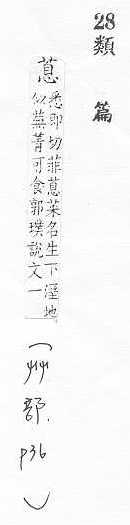 28類 篇
蒠
悉即切菲蒠菜名生下溼地
似蕪菁可食郭璞說文一
(艸部. p36)